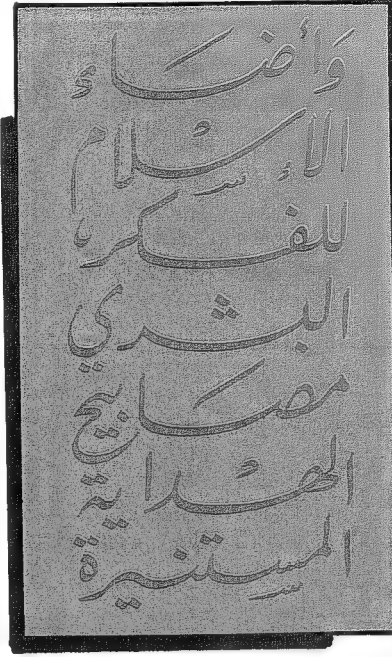 وأضاء
الإسلام
للفكر
البشري
مصابيح
الهداية
المستنيرة